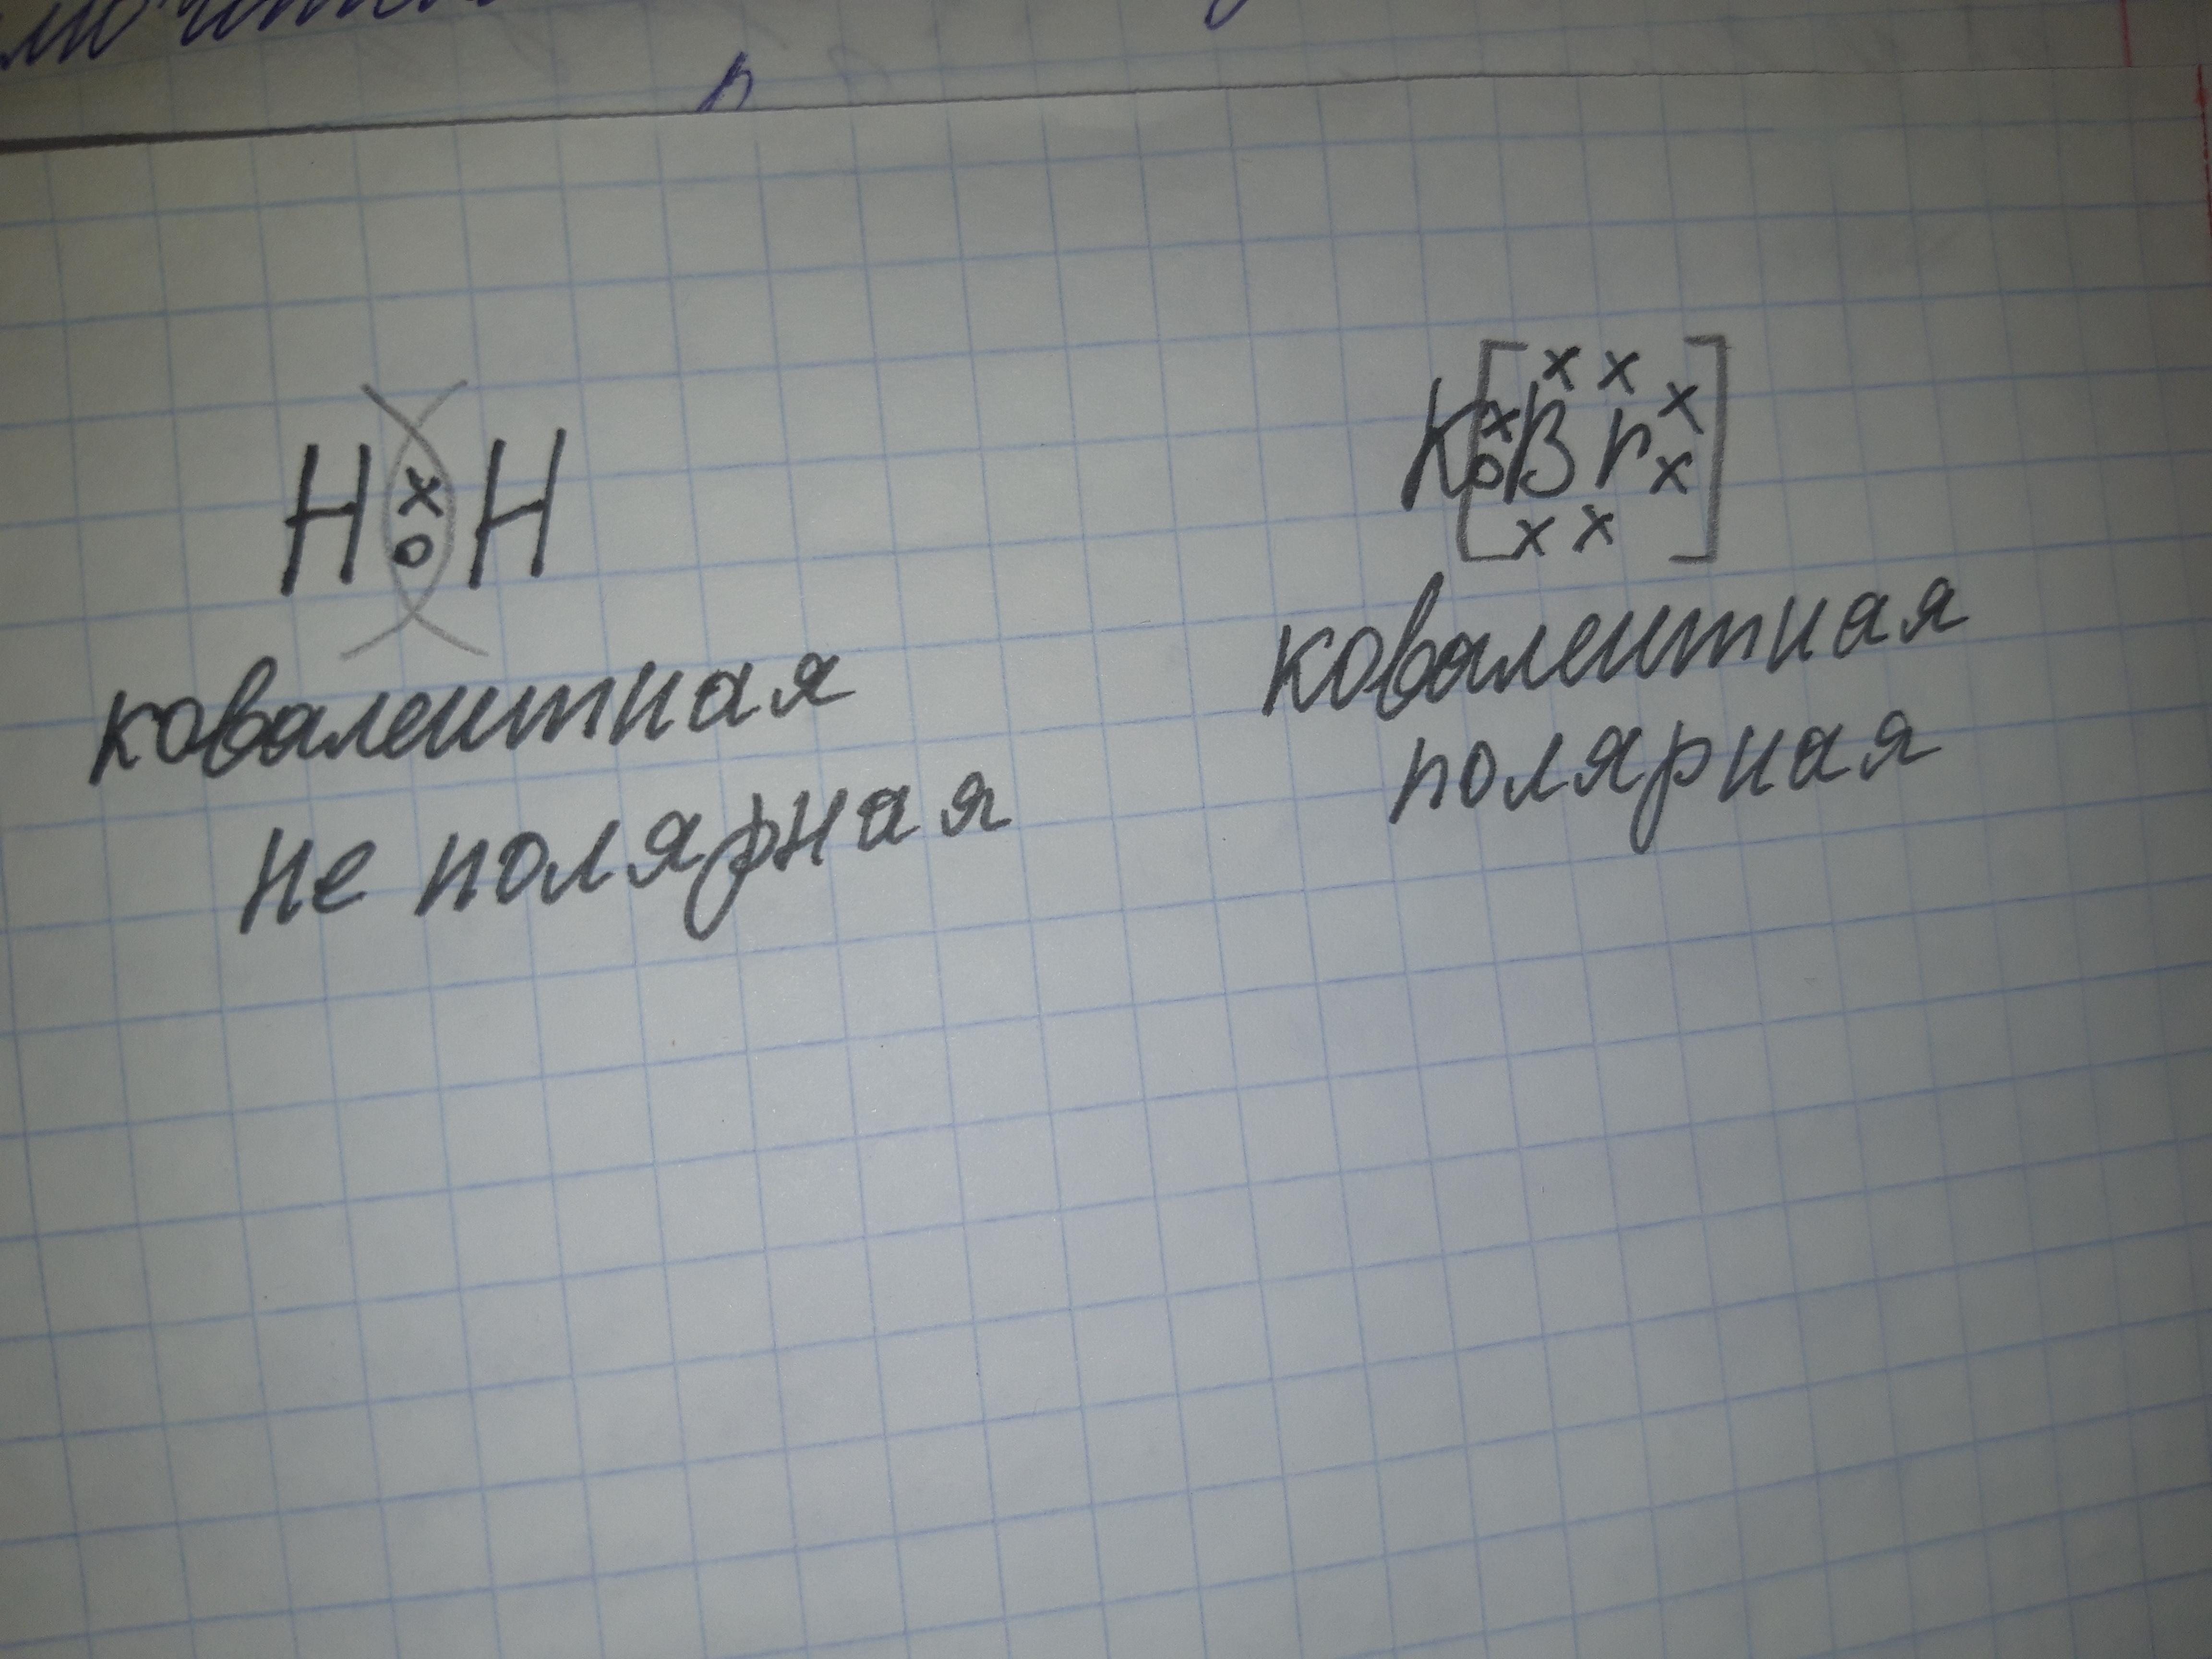 H x o H
ковалентная
не полярная
x x
K [ x o Br x x ]
x x
ковалентная
полярная